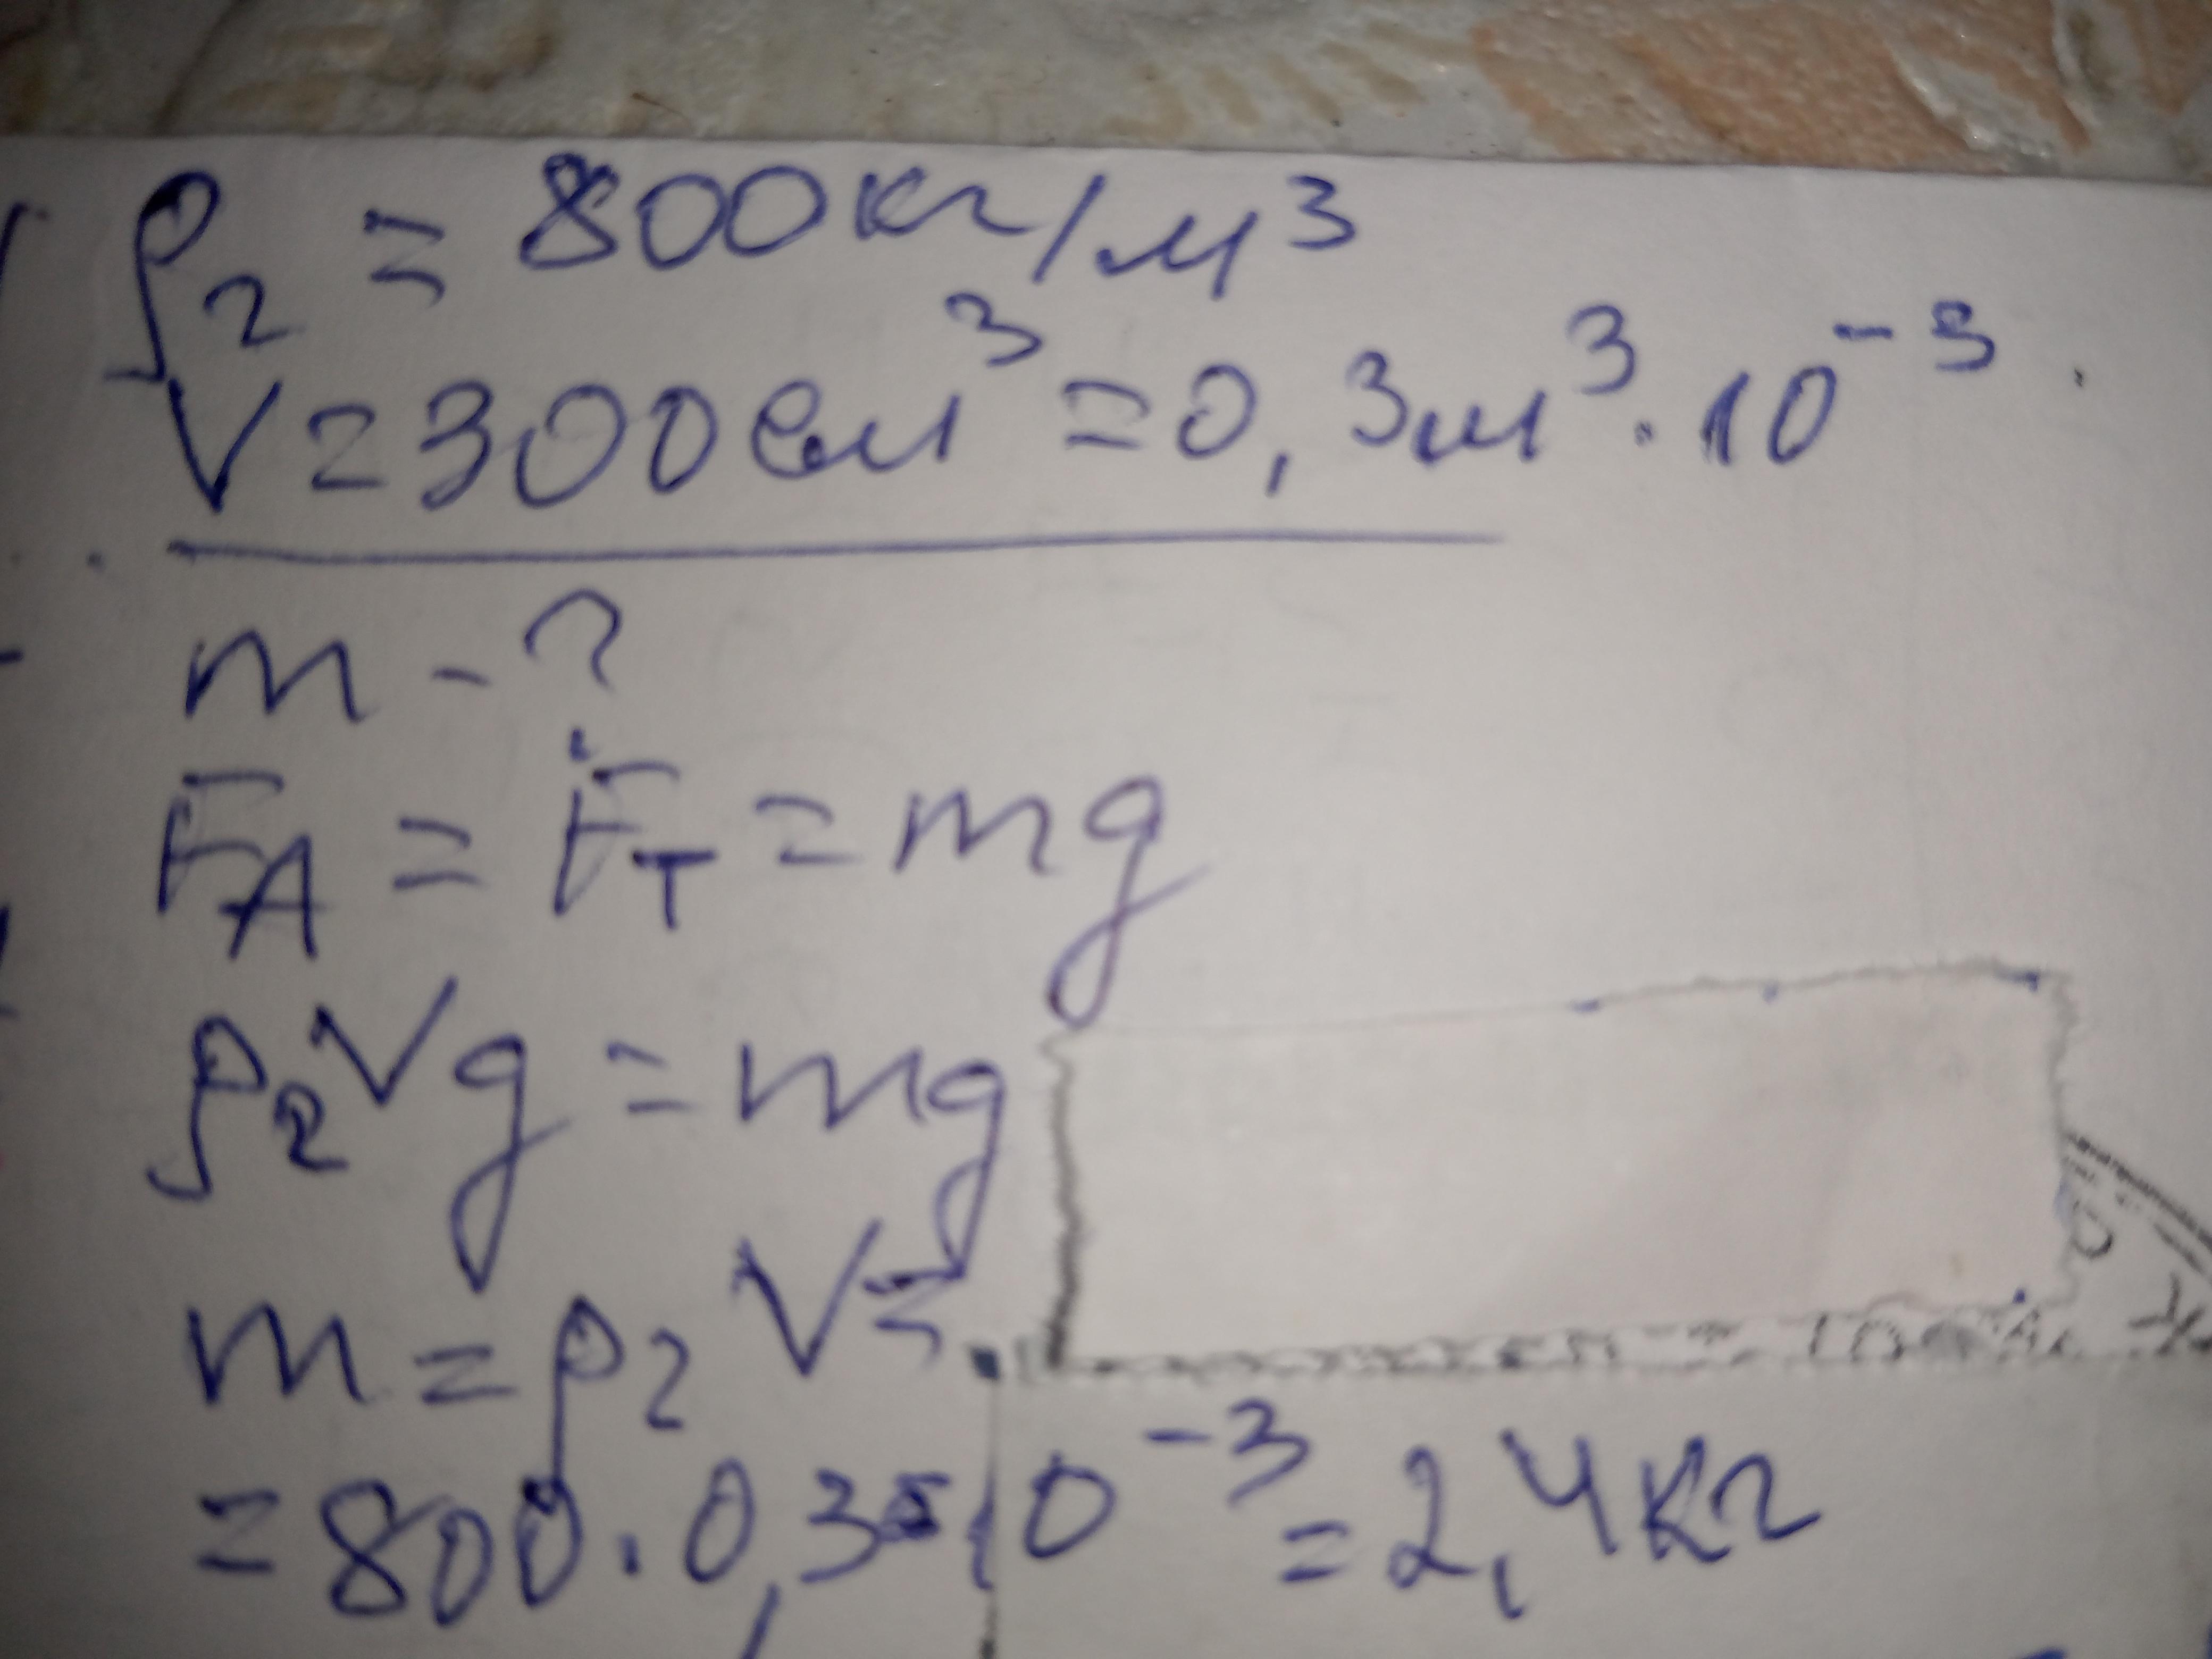 ρ₂ = 800 кг/м³
V = 300 см³ = 0,3 м³ · 10⁻³
m - ?
F_A = F_T = mg
ρ₂Vg = mg
m = ρ₂V =
= 800 · 0,3 · 10⁻³ = 2,4 кг